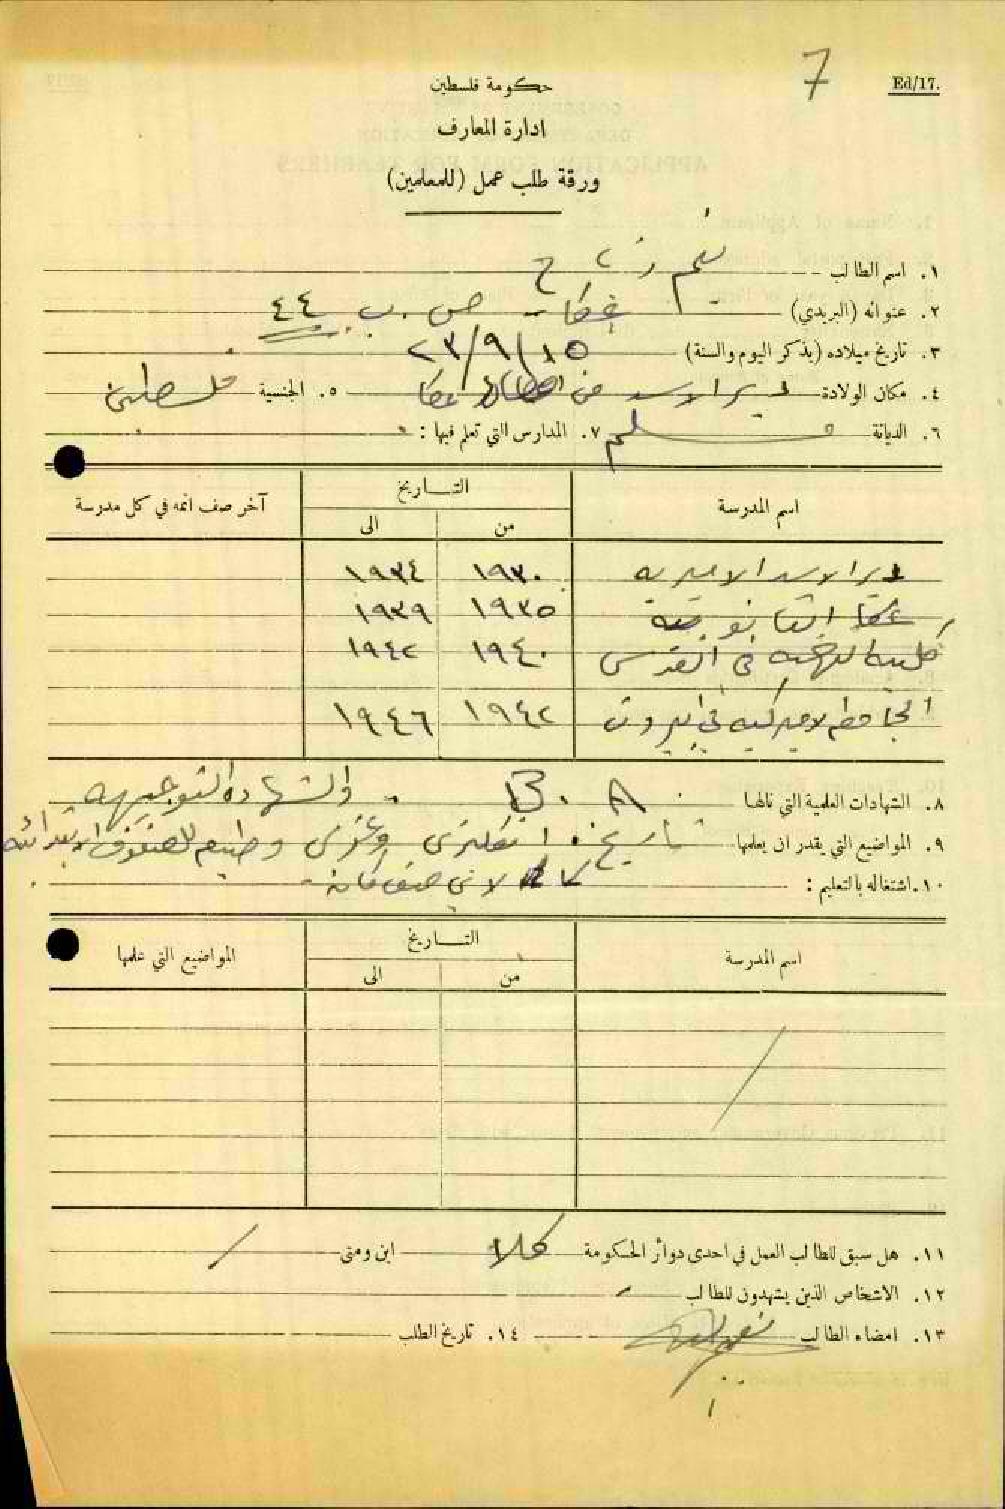 7
Ed/17.
حكومة فلسطين
ادارة المعارف
ورقة طلب عمل (للمعلمين)
١. اسم الطالب
٢. عنوانه (البريدي) عكا - ص. ب. ٤٤
٣. تاريخ ميلاده (يذكر اليوم والسنة) ١٥/٩/٢٣
٤. مكان الولادة ديرالاسد من عكا ٥. الجنسية فلسطين
٦. الديانة مسلم ٧. المدارس التي تعلم فيها :
اسم المدرسة التاريخ آخر صف أتمه في كل مدرسة
من الى
ديرالاسد الاميرية ١٩٣٠ ١٩٣٤
عكا الثانوية ١٩٣٥ ١٩٣٩
الكلية العربية في القدس ١٩٤٠ ١٩٤٢
الجامعة الاميركية في بيروت ١٩٤٢ ١٩٤٦
٨. الشهادات العلمية التي نالها B. A. والشهادة التوجيهية
٩. المواضيع التي يقدر ان يعلمها تاريخ. انكليزي وعربي للصفوف الابتدائية
١٠. اشتغاله بالتعليم : كلا لاني
اسم المدرسة التاريخ المواضيع التي علمها
من الى
١١. هل سبق للطالب العمل في احدى دوائر الحكومة كلا اين ومتى /
١٢. الاشخاص الذين يشهدون للطالب -
١٣. امضاء الطالب ١٤. تاريخ الطلب